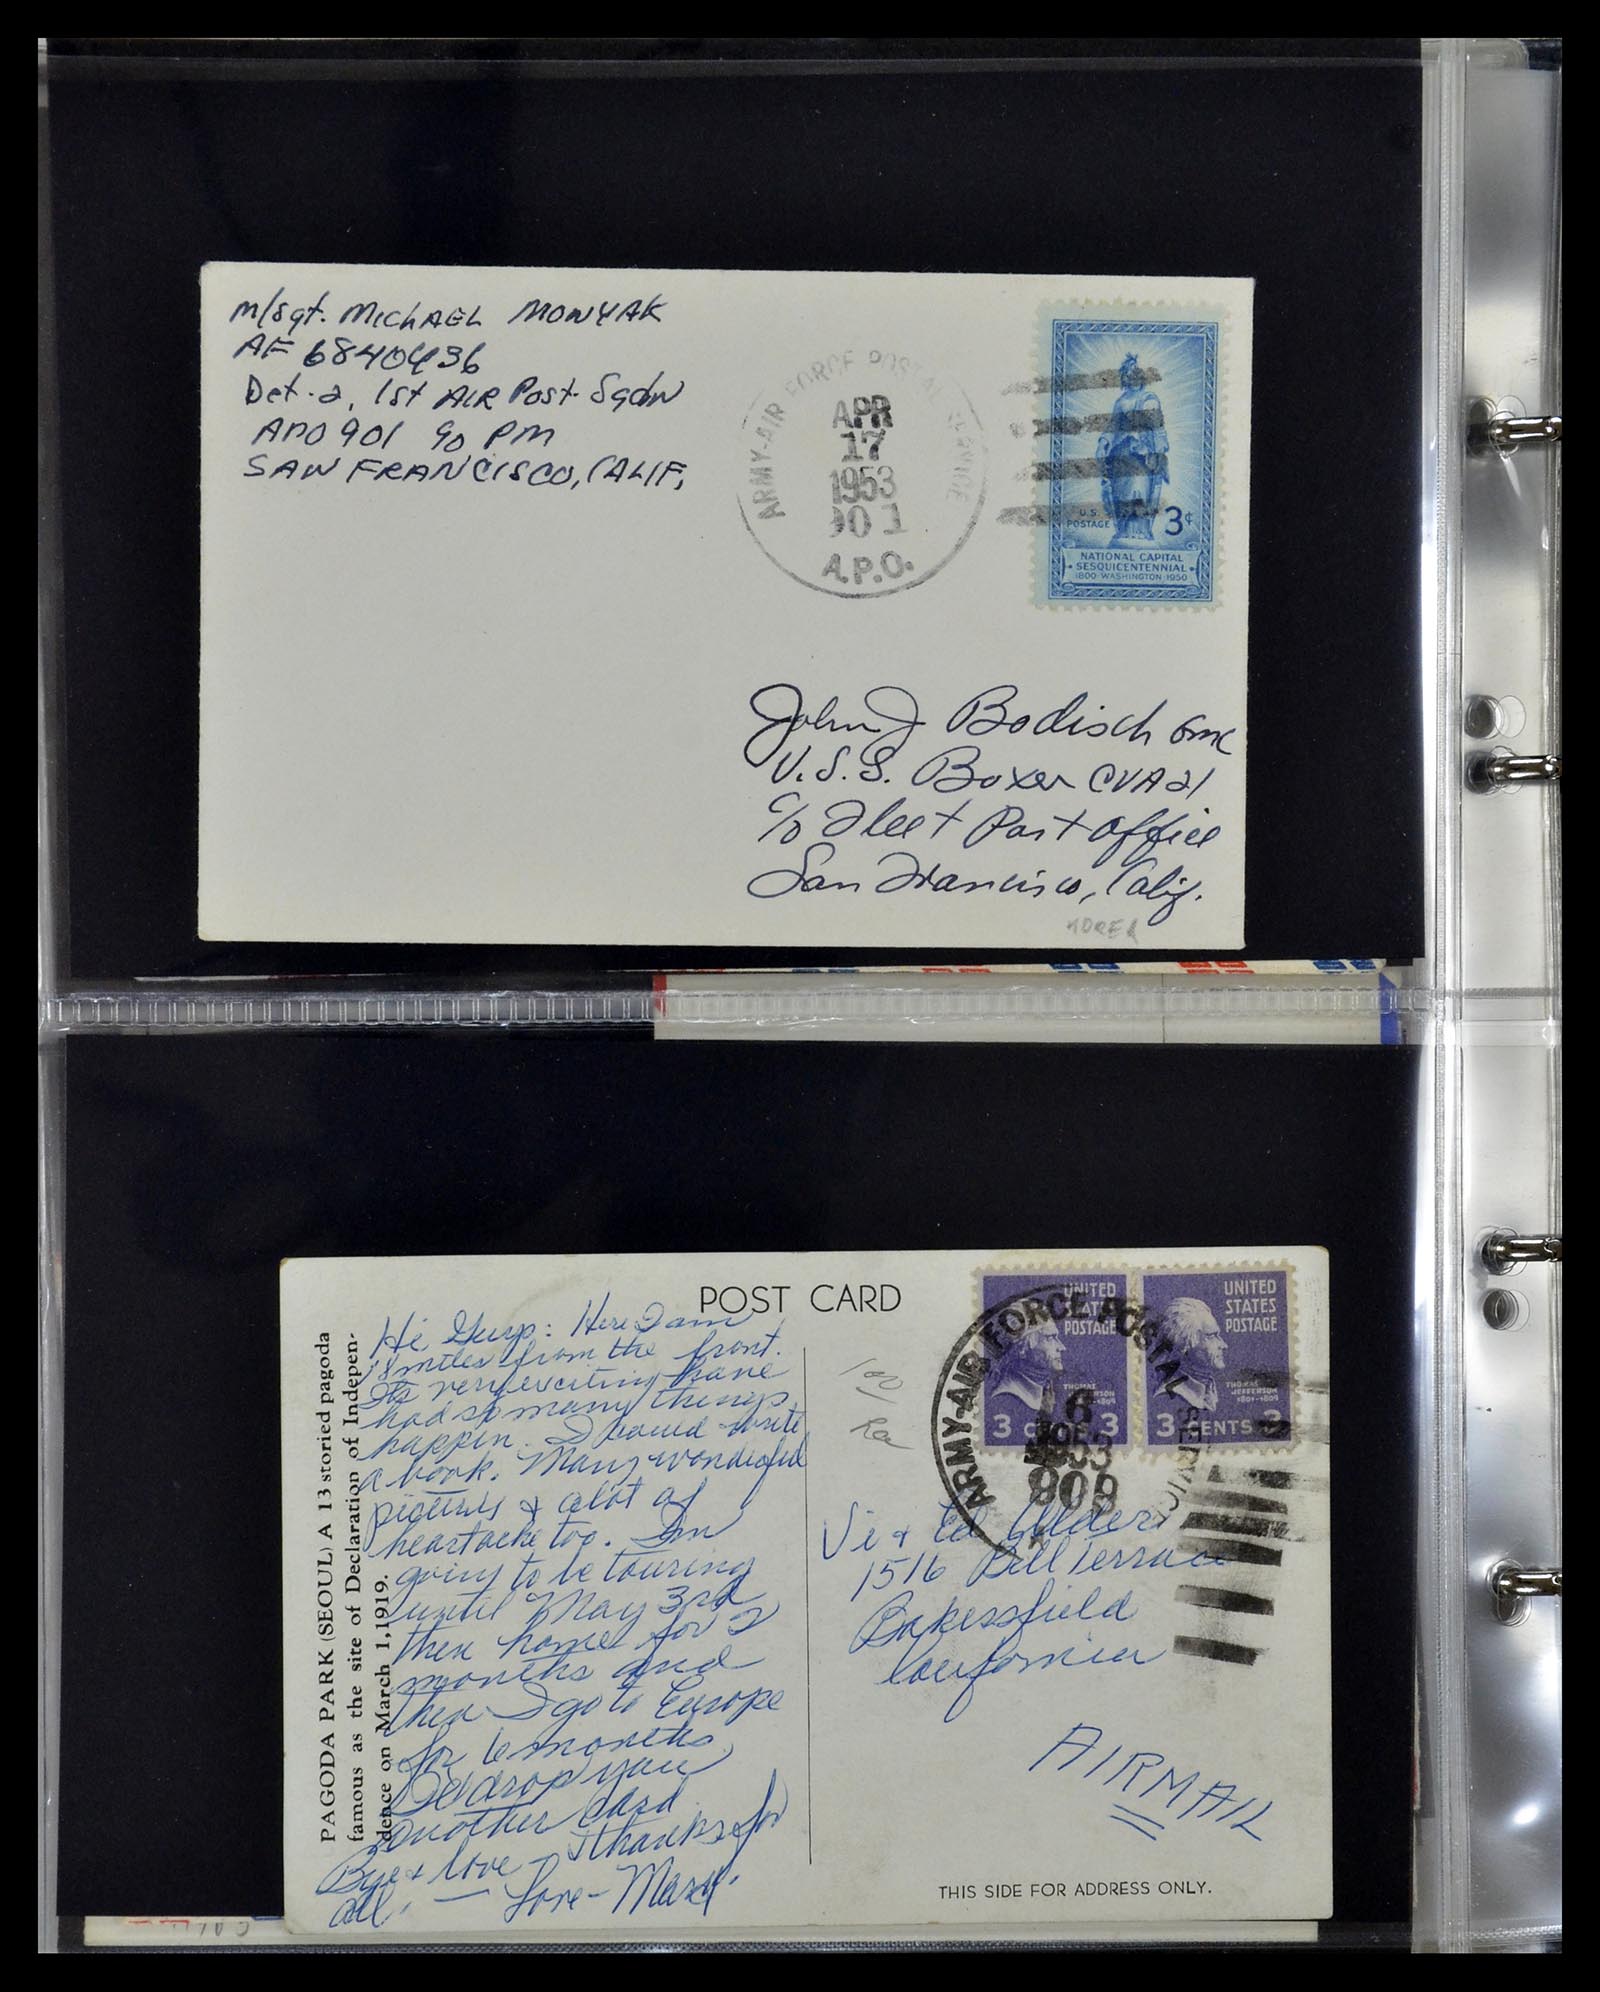 M/Sgt. MICHAEL MONYAK
AF 6840436
Det-2, 1st AIR Post Sqdn
APO 901 c/o PM
SAN FRANCISCO, CALIF,
ARMY-AIR FORCE POSTAL SERVICE
APR
17
1953
901
A.P.O.
U.S.
POSTAGE 3¢
NATIONAL CAPITAL
SESQUICENTENNIAL
1800·WASHINGTON·1950
John J Bodisch GMC
U.S.S. Boxer CVA 21
c/o Fleet Post Office
San Francisco, Calif.
KOREA
POST CARD
PAGODA PARK (SEOUL) A 13 storied pagoda
famous as the site of Declaration of Indepen-
dence on March 1,1919.
Hi Guys: Here I am
18 miles from the front.
Its very exciting have
had so many things
happen. I could write
a book. Many wonderful
pictures & a lot of
heartache too. Im
going to be touring
until May 3rd
then home for 2
months and
then I go to Europe
for 6 months
I'll drop you
another card
Bye & love - thanks for
all. — Love - Mary.
UNITED
STATES
POSTAGE
THOMAS
JEFFERSON
1801-1809
3 CENTS 3
UNITED
STATES
POSTAGE
THOMAS
JEFFERSON
1801-1809
3 CENTS 3
ARMY-AIR FORCE POSTAL SERVICE
6
1953
909
100
Vi & Ed
1516 Bell Terrace
Bakersfield
California
AIRMAIL
THIS SIDE FOR ADDRESS ONLY.